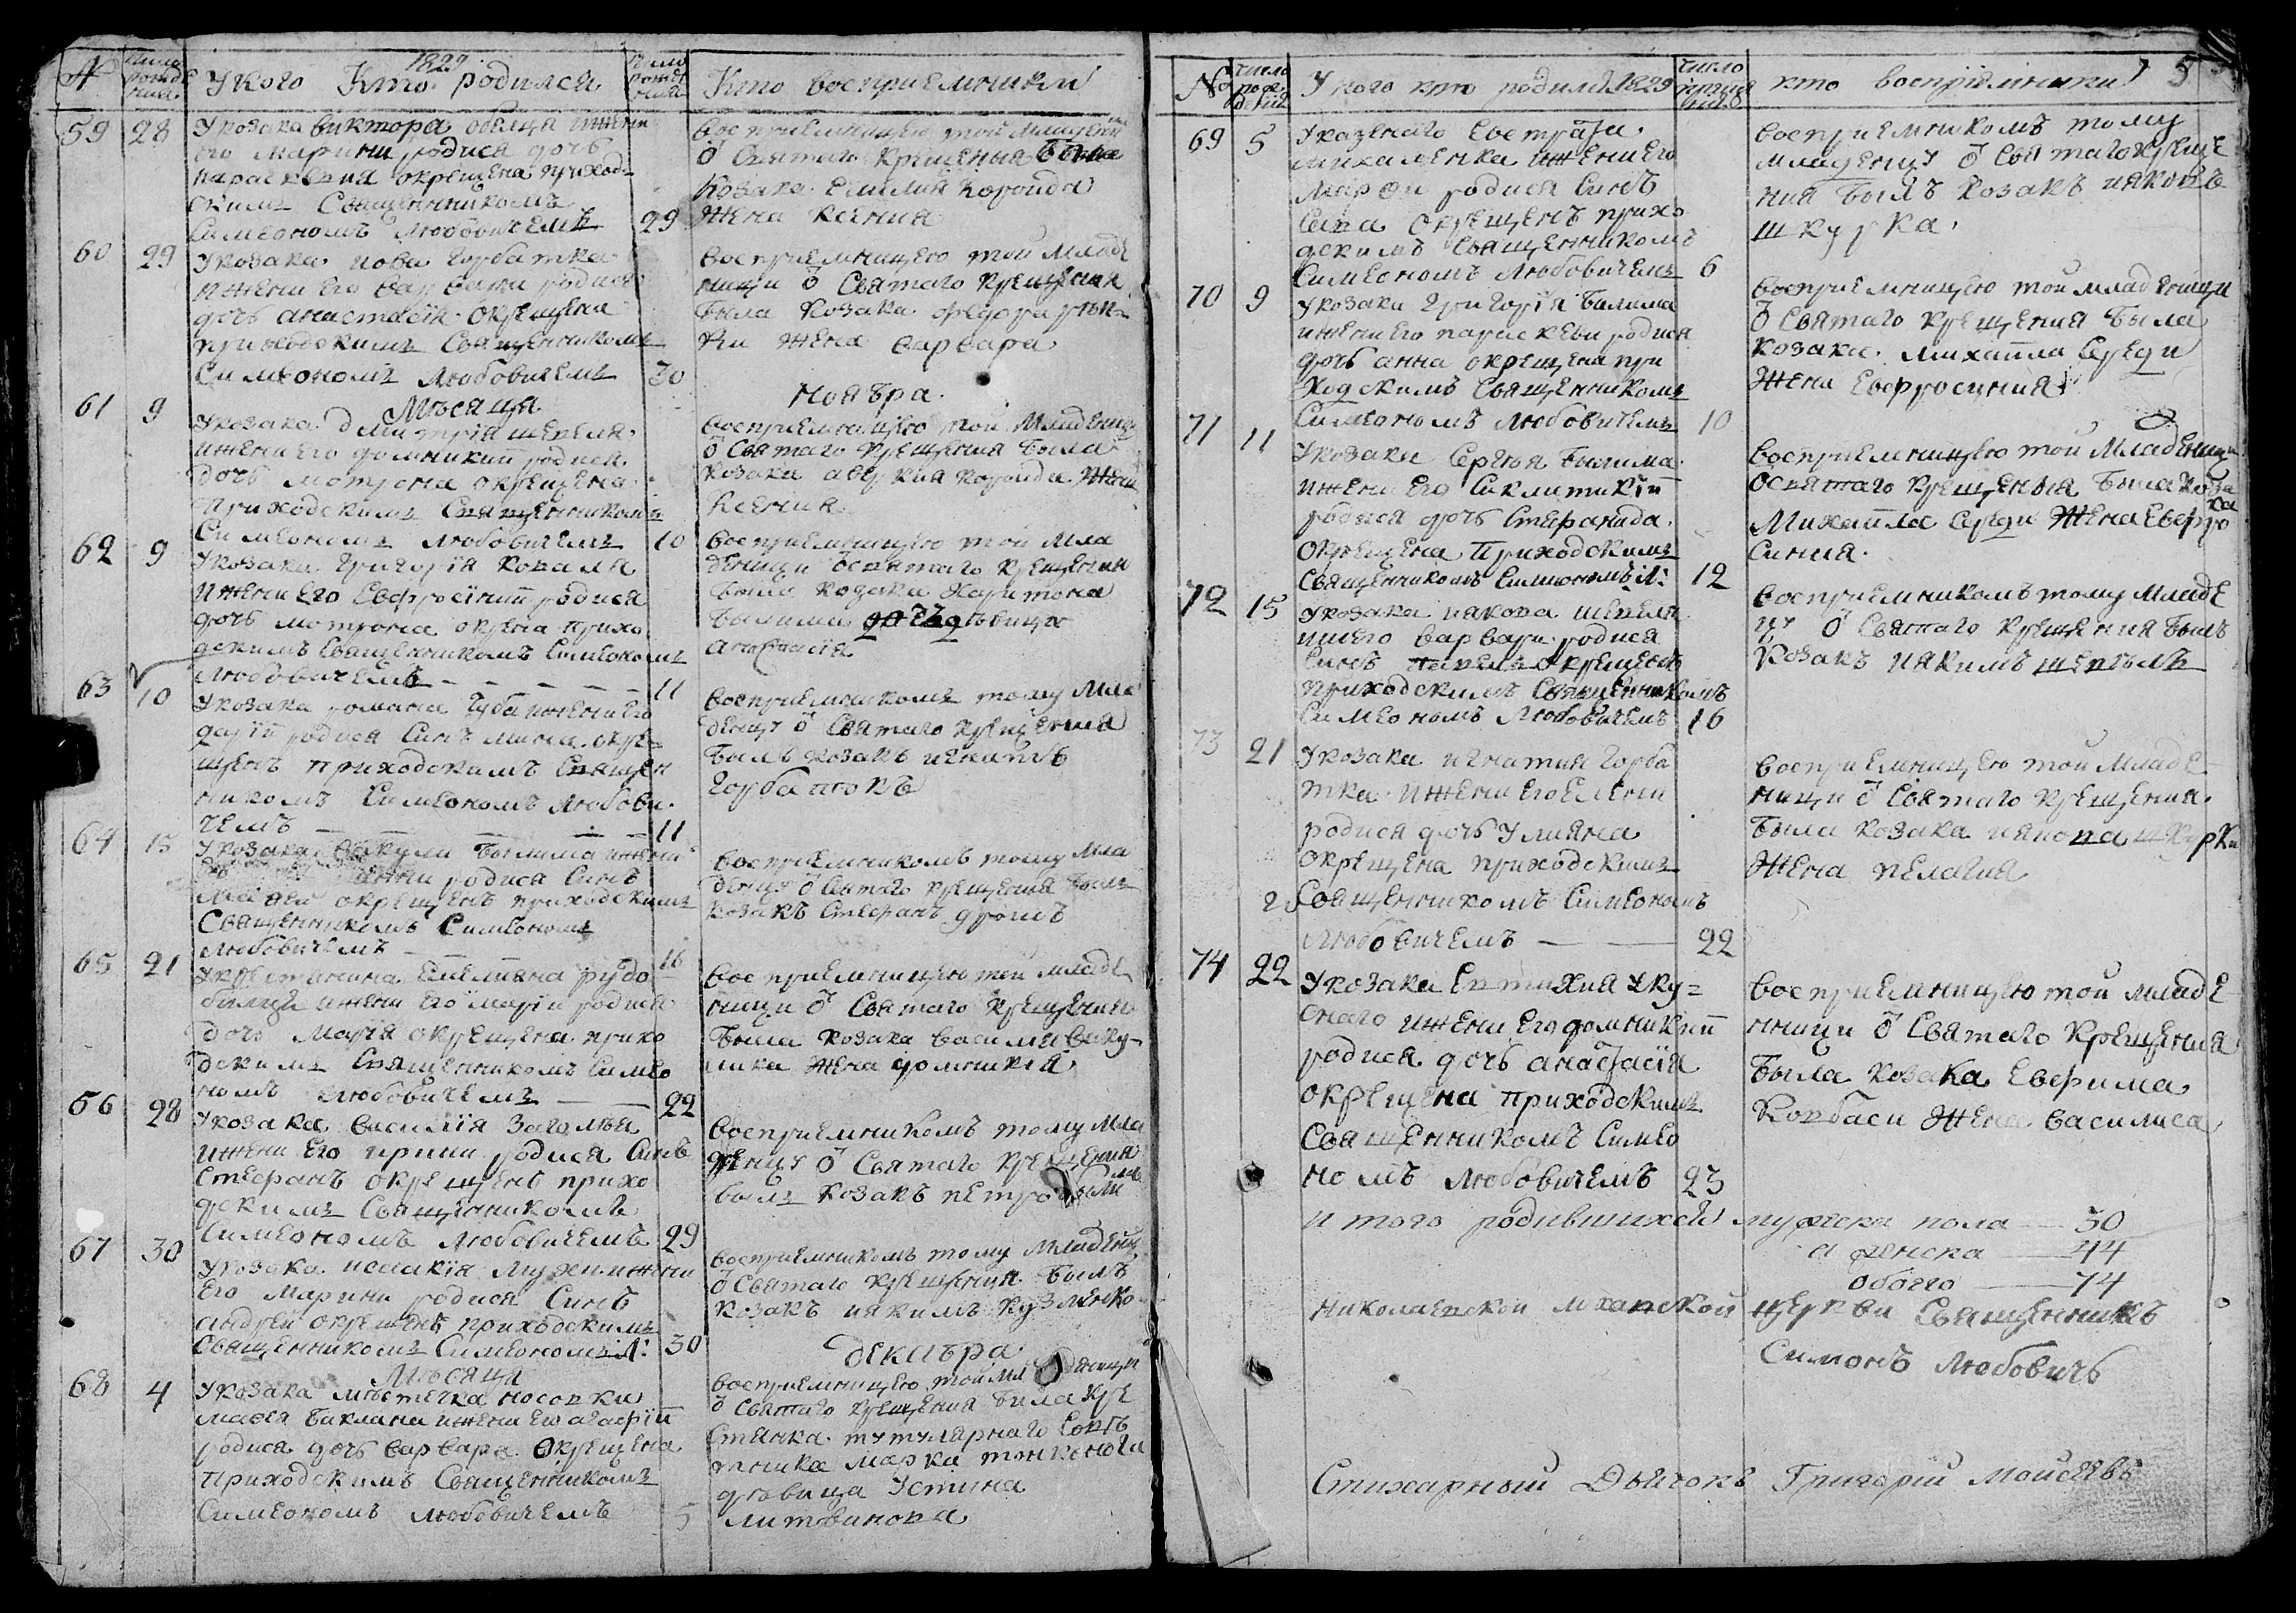 № число рожденія У кого 1829 Кто родился число Кто восприемники
59 28 У козака виктора
его Марини родися дочь
параскевия окрещена приход-
скимъ Священникомъ
Симеономъ Любовичемъ 29
восприемницею той младени
ѿ Святаго Крещения Была
Козака
Жена Ксения
60 29 У козака иова горбатка
и жени его варвари родися
дочь анастасія окрещена
приходскимъ Священникомъ
Симеономъ Любовичемъ 30
восприемницею той младе
ници ѿ Святаго Крещения
Была Козака федора
жена варвара
Мѣсяца Ноября
61 9 У козака дмитрія шепеля
и жени его домникіи родися
дочь мотрона окрещена
приходскимъ Священникомъ
Симеономъ Любовичемъ 10
восприемницею той Младениц
ѿ Святаго Крещения Была
козака аверкия жена
Ксения
62 9 У козака григорія коваля
и жени его Евфросініи родися
дочь мотрона окрена прихо
дскимъ Священникомъ Симеономъ
Любовичемъ - - - - - 11
восприемницею той Мла
деници ѿ святаго крещения
Была козака Харитона
Былими дочь дѣвица
анастасія
63 10 У козака романа губа и жени его
даріи родися Синъ мина окре-
щенъ приходскимъ Священ
никомъ Симеономъ Любови
чемъ — — — — 11
восприемникомъ тому мла
денцу ѿ Святаго Крещения
Былъ козакъ игнатъ
Горбатокъ
64 15 У козака вакули Былима и жени
анни родися Синъ
окрещенъ приходскимъ
Священникомъ Симеономъ
Любовичемъ - — — — 16
восприемникомъ тому мла
денцу ѿ Святаго крещения Былъ
козакъ Стефанъ
65 21 У крестянина Емелияна рудо
и жени его маріи родися
дочь Марія окрещена прихо
дскимъ Священникомъ Симео
номъ Любовичемъ —— 22
восприемницею той младе
ници ѿ Святаго Крещения
Была козака васили
жена домникія
56 28 У козака василія Загомъя
и жени его ирини родися Синъ
Стефанъ окрещенъ прихо
дскимъ Священникомъ
Симеономъ Любовичемъ 29
восприемникомъ тому мла
денцу ѿ Святаго крещения
былъ козакъ петро
67 30 У козака исаакія Мухи и жени
его Марини родися Синъ
андрей окрещенъ приходскимъ
Священникомъ Симеономъ Л: 30
восприемникомъ тому Младенц
ѿ Святаго крещения Былъ
козакъ иякимъ Кузменко
Мѣсяца Декабра
68 4 У козака мѣстечка носовки
мафея Баклана и жени его агафіи
родися дочь варвара окрещена
приходскимъ Священникомъ
Симеономъ Любовичемъ 5
восприемницею той мл деници
ѿ Святаго крещения Била кре
стянка титулярнаго совѣ
тника марка
дѣвица Устина
Литвинова
№ число рождения У кого кто родился 1829 число крещения кто восприемники 5
69 5 У казенаго Евстратя
михаленка и жени его
Марфи родися Синъ
Сава окрещенъ прихо
дскимъ Священникомъ
Симеономъ Любовичемъ 6
восприемникомъ тому
младенцу ѿ Святаго креще
ния Былъ козакъ ияковъ
шкурка
70 9 У козака григорія Былима
и жени его параскеви родися
дочь анна окрещена при
ходскимъ Священникомъ
Симеономъ Любовичемъ 10
восприемницею той младеници
ѿ Святаго крещения Была
козака михаила Середи
жена Евфросиния
71 11 У козака Сергия Былима
и жени его Сиклитикіи
родися дочь Стефанида
окрещена приходскимъ
Священникомъ Симеономъ Л: 12
восприемницею той Младениц
ѿ святаго крещения Была коза
ка
Михаила Середи жена Евфро
синия
72 15 У козака иякова шепеля
и его варвари родися
Синъ окрещенъ
приходскимъ Священникомъ
Симеономъ Любовичемъ 16
восприемникомъ тому младе
цу ѿ Святаго крещения Былъ
Козакъ иякимъ шепель
73 21 У козака игнатия горба
тка и жени его Елени
родися дочь Улияна
окрещена приходскимъ
Священникомъ Симеономъ
Любовичемъ — — 22
восприемницею той Младе
ници ѿ Святаго крещения
Была козака иякова шкурки
жена пелагия
74 22 У козака Евтихия Уку-
снаго и жени его домникіи
родися дочь анастасія
окрещена приходскимъ
Священникомъ Симео
номъ Любовичемъ 23
восприемницею той младе
ници ѿ Святаго крещения
Была козака Евфима
Ковбаси жена василиса
итого родившихся мужеска пола — 30
а женска — 44
обоего — 74
николаевской церкви Священникъ
Симонъ Любовичь
Стихарный Дьячокъ Григорій Мойсеевъ